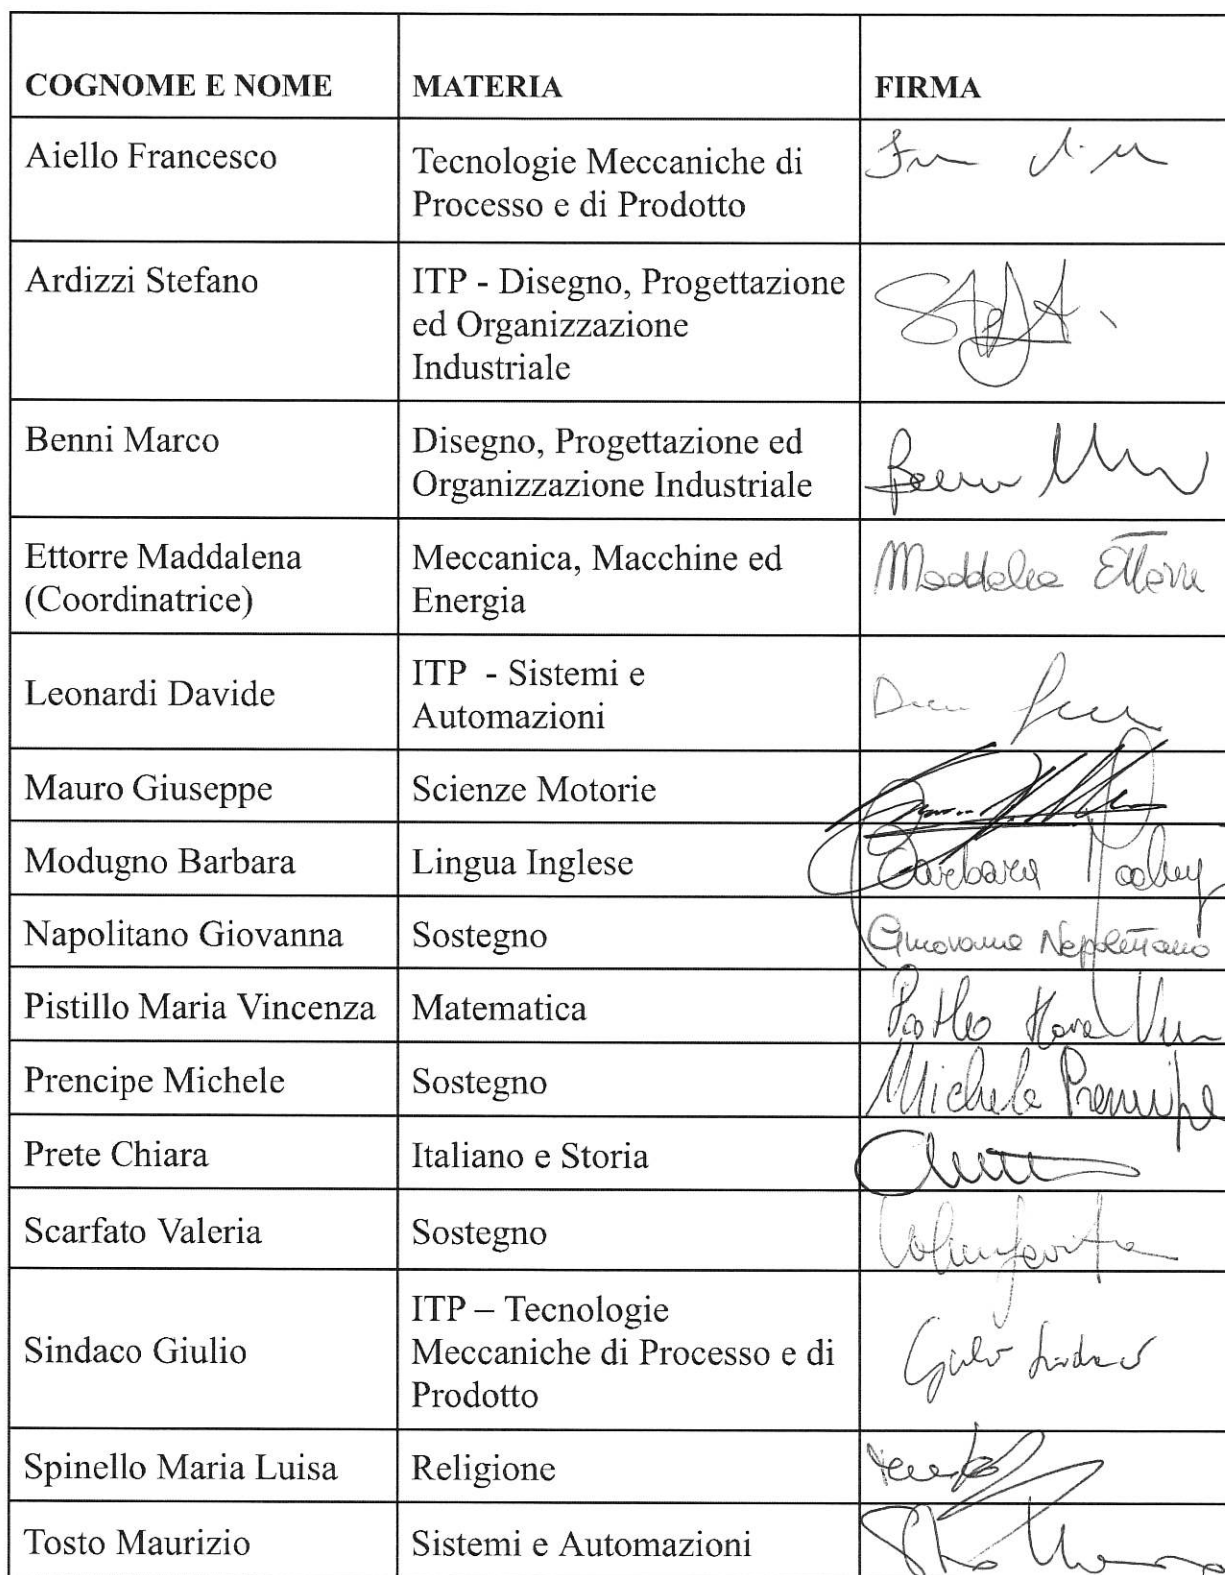 COGNOME E NOME MATERIA FIRMA
Aiello Francesco Tecnologie Meccaniche di
Processo e di Prodotto
Ardizzi Stefano ITP - Disegno, Progettazione
ed Organizzazione
Industriale
Benni Marco Disegno, Progettazione ed
Organizzazione Industriale
Ettorre Maddalena Meccanica, Macchine ed Maddalena Ettorre
(Coordinatrice) Energia
Leonardi Davide ITP - Sistemi e
Automazioni
Mauro Giuseppe Scienze Motorie
Modugno Barbara Lingua Inglese Barbara
Napolitano Giovanna Sostegno Giovanna Napolitano
Pistillo Maria Vincenza Matematica
Prencipe Michele Sostegno Michele Prencipe
Prete Chiara Italiano e Storia
Scarfato Valeria Sostegno
Sindaco Giulio ITP – Tecnologie
Meccaniche di Processo e di Giulio Sindaco
Prodotto
Spinello Maria Luisa Religione
Tosto Maurizio Sistemi e Automazioni